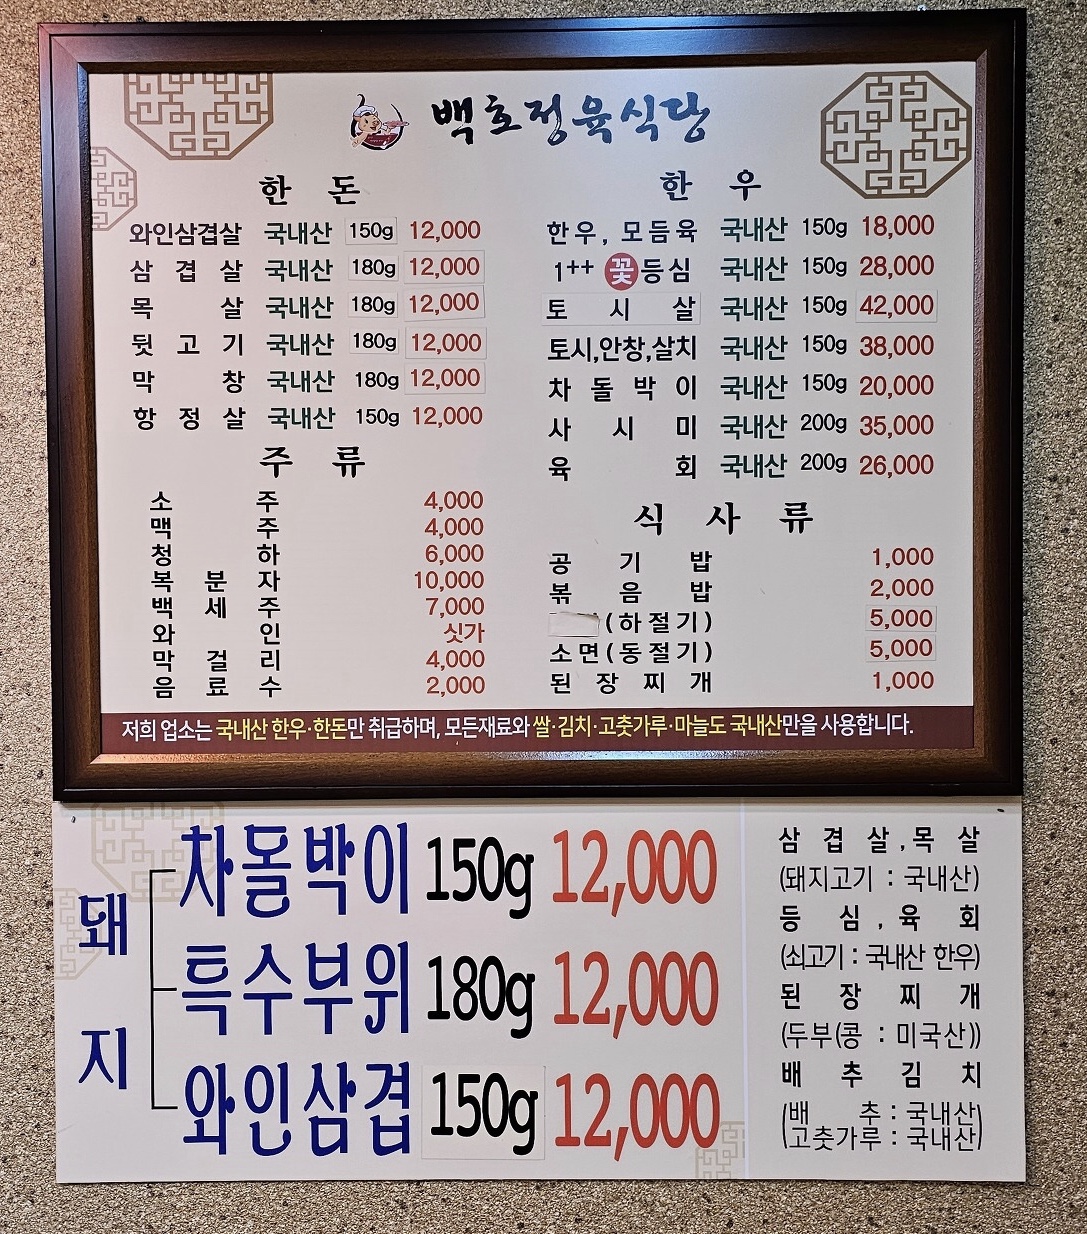 백호정육식당
한 돈
와인삼겹살 국내산 150g 12,000
삼 겹 살 국내산 180g 12,000
목 살 국내산 180g 12,000
뒷 고 기 국내산 180g 12,000
막 창 국내산 180g 12,000
항 정 살 국내산 150g 12,000
주 류
소 주 4,000
맥 주 4,000
청 하 6,000
복 분 자 10,000
백 세 주 7,000
와 인 싯가
막 걸 리 4,000
음 료 수 2,000
한 우
한우, 모듬육 국내산 150g 18,000
1++ 꽃등심 국내산 150g 28,000
토 시 살 국내산 150g 42,000
토시,안창,살치 국내산 150g 38,000
차 돌 박 이 국내산 150g 20,000
사 시 미 국내산 200g 35,000
육 회 국내산 200g 26,000
식 사 류
공 기 밥 1,000
볶 음 밥 2,000
(하절기) 5,000
소면(동절기) 5,000
된 장 찌 개 1,000
저희 업소는 국내산 한우·한돈만 취급하며, 모든재료와 쌀·김치·고춧가루·마늘도 국내산만을 사용합니다.
돼지
차돌박이 150g 12,000
특수부위 180g 12,000
와인삼겹 150g 12,000
삼 겹 살 , 목 살
(돼지고기 : 국내산)
등 심 , 육 회
(쇠고기 : 국내산 한우)
된 장 찌 개
(두부(콩 : 미국산))
배 추 김 치
(배 추 : 국내산)
(고춧가루 : 국내산)